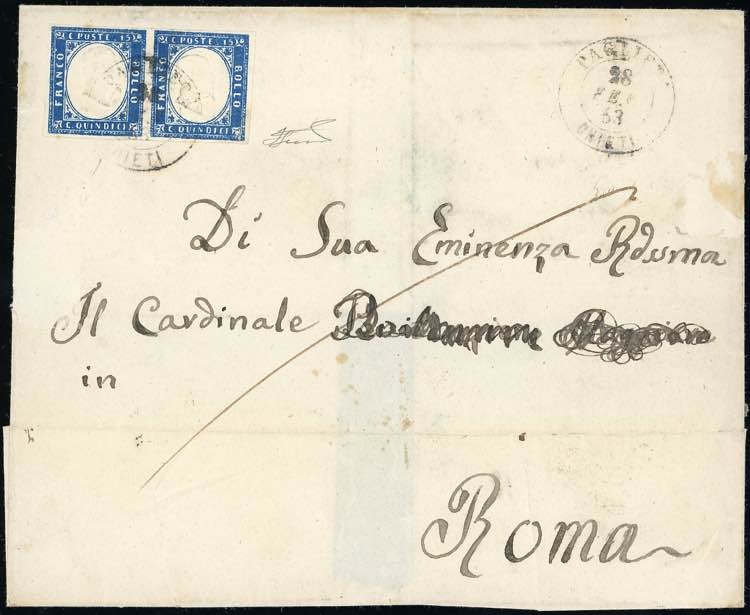 C. POSTE 15
FRANCO
BOLLO
C. QUINDICI
C. POSTE 15
FRANCO
BOLLO
C. QUINDICI
CHIETI
28
FEB
63
CHIETI
Di Sua Eminenza Rdssma
Il Cardinale
in
Roma